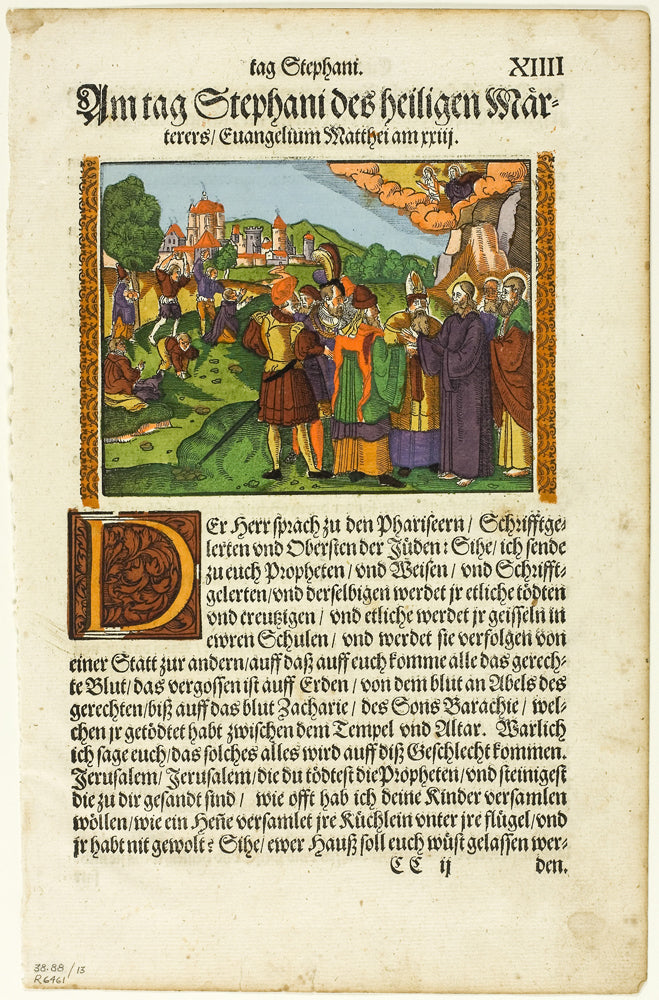 tag Stephani. XIIII
Am tag Stephani des heiligen Mär-
terers/ Euangelium Matthei am xxiij.
DEr Herr sprach zu den Phariseern/ Schrifftge-
lerten vnd Obersten der Jüden: Sihe/ ich sende
zu euch Propheten/ vnd Weisen/ vnd Schrifft-
gelerten/ vnd derselbigen werdet jr etliche tödten
vnd creutzigen/ vnd etliche werdet jr geisseln in
ewren Schulen/ vnd werdet sie verfolgen von
einer Statt zur andern/ auff daß auff euch komme alle das gerech-
te Blut/ das vergossen ist auff Erden/ von dem blut an Abels des
gerechten/ biß auff das blut Zacharie/ des Sons Barachie/ wel-
chen jr getödtet habt zwischen dem Tempel vnd Altar. Warlich
ich sage euch/ das solches alles wird auff diß Geschlecht kommen.
Jerusalem/ Jerusalem/ die du tödtest die Propheten/ vnd steinigest
die zu dir gesandt sind/ wie offt hab ich deine Kinder versamlen
wöllen/ wie ein Heñe versamlet jre Küchlein vnter jre flügel/ vnd
jr habt nit gewolt? Sihe/ ewer Hauß soll euch wüst gelassen wer-
C C ij den.
38.88/13
R6461